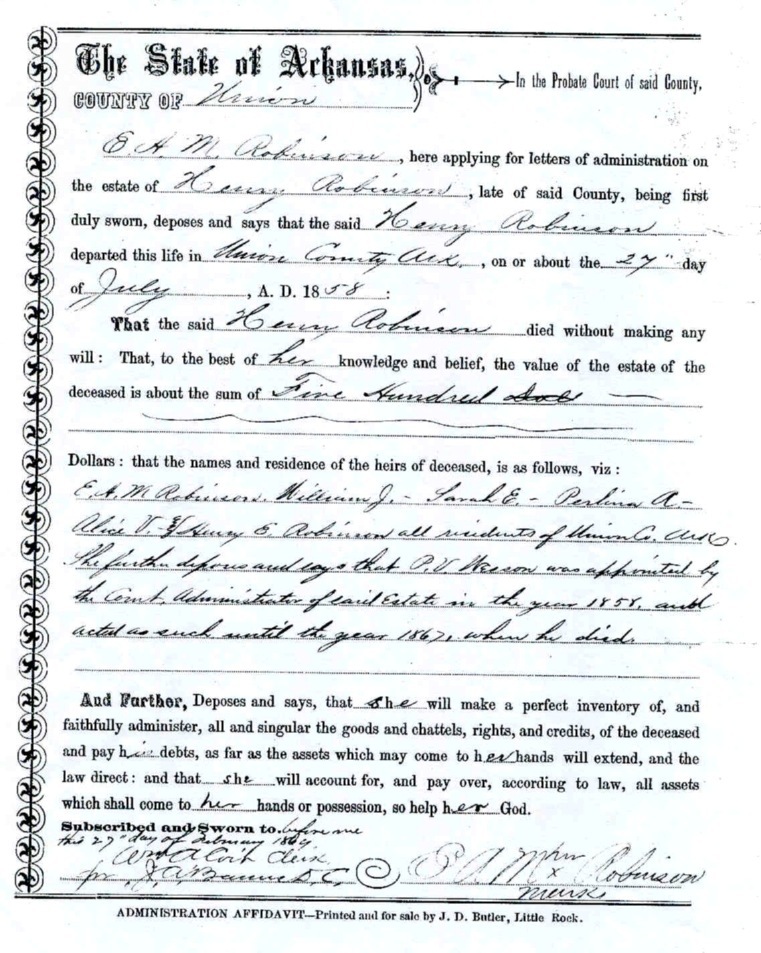 The State of Arkansas,
COUNTY OF Union
In the Probate Court of said County,
E. A. M. Robinson, here applying for letters of administration on
the estate of Henry Robinson, late of said County, being first
duly sworn, deposes and says that the said Henry Robinson
departed this life in Union County Ark, on or about the 27" day
of July, A. D. 1858:
That the said Henry Robinson died without making any
will: That, to the best of her knowledge and belief, the value of the estate of the
deceased is about the sum of Five Hundred
Dollars: that the names and residence of the heirs of deceased, is as follows, viz:
E. A. M Robinson. William J. - Sarah E. - Perlina A. -
Alice V. & Henry E. Robinson all residents of Union C. Ark.
She further deposes and says that P. V. Wesson was appointed by
the Court, Administrator of said Estate in the year 1858, and
acted as such until the year 1867, when he died.
And Further, Deposes and says, that she will make a perfect inventory of, and
faithfully administer, all and singular the goods and chattels, rights, and credits, of the deceased
and pay his debts, as far as the assets which may come to her hands will extend, and the
law direct: and that she will account for, and pay over, according to law, all assets
which shall come to her hands or possession, so help her God.
Subscribed and Sworn to before me
this 27" day of February 1869
Wm A Coit Clerk
pr J. A. D. C.
E A M her x mark Robinson
ADMINISTRATION AFFIDAVIT—Printed and for sale by J. D. Butler, Little Rock.